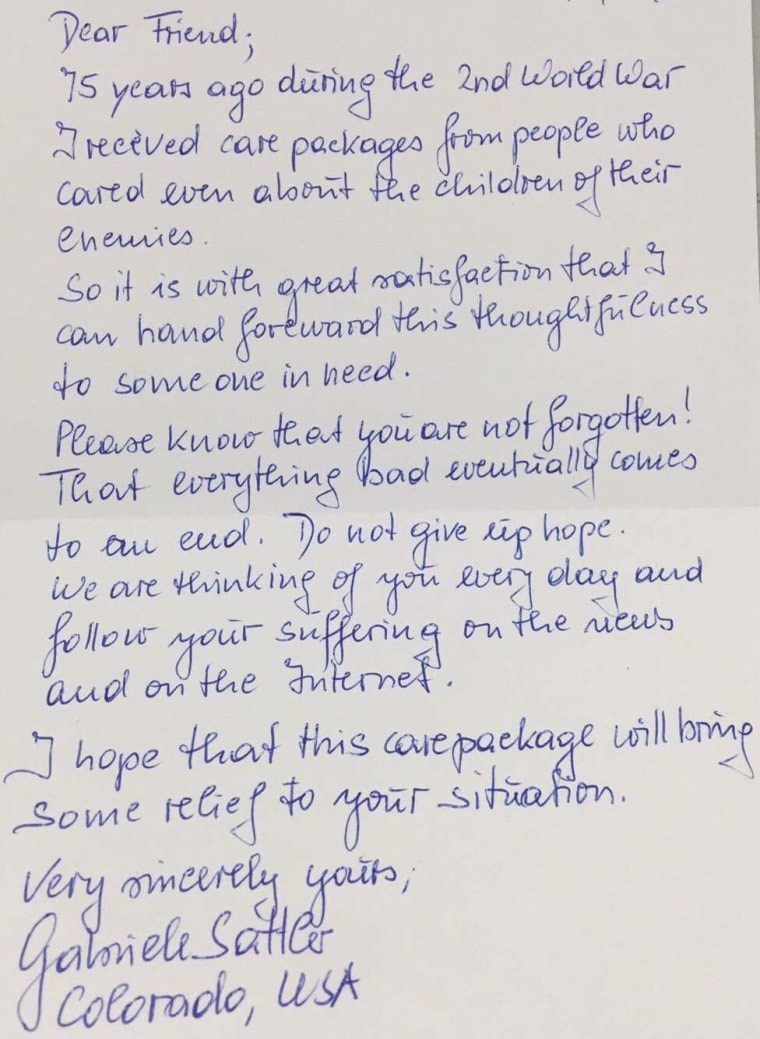 Dear Friend;
75 years ago during the 2nd World War
I receved care packages from people who
cared even about the children of their
enemies.
So it is with great satisfaction that I
can hand foreward this thoughtfulness
to some one in need.
Please know that you are not forgotten!
That everything bad eventually comes
to an end. Do not give up hope.
We are thinking of you every day and
follow your suffering on the news
and on the Internet.
I hope that this carepackage will bring
some relief to your situation.
Very sincerely yours,
Gabriele Sattler
Colorado, USA